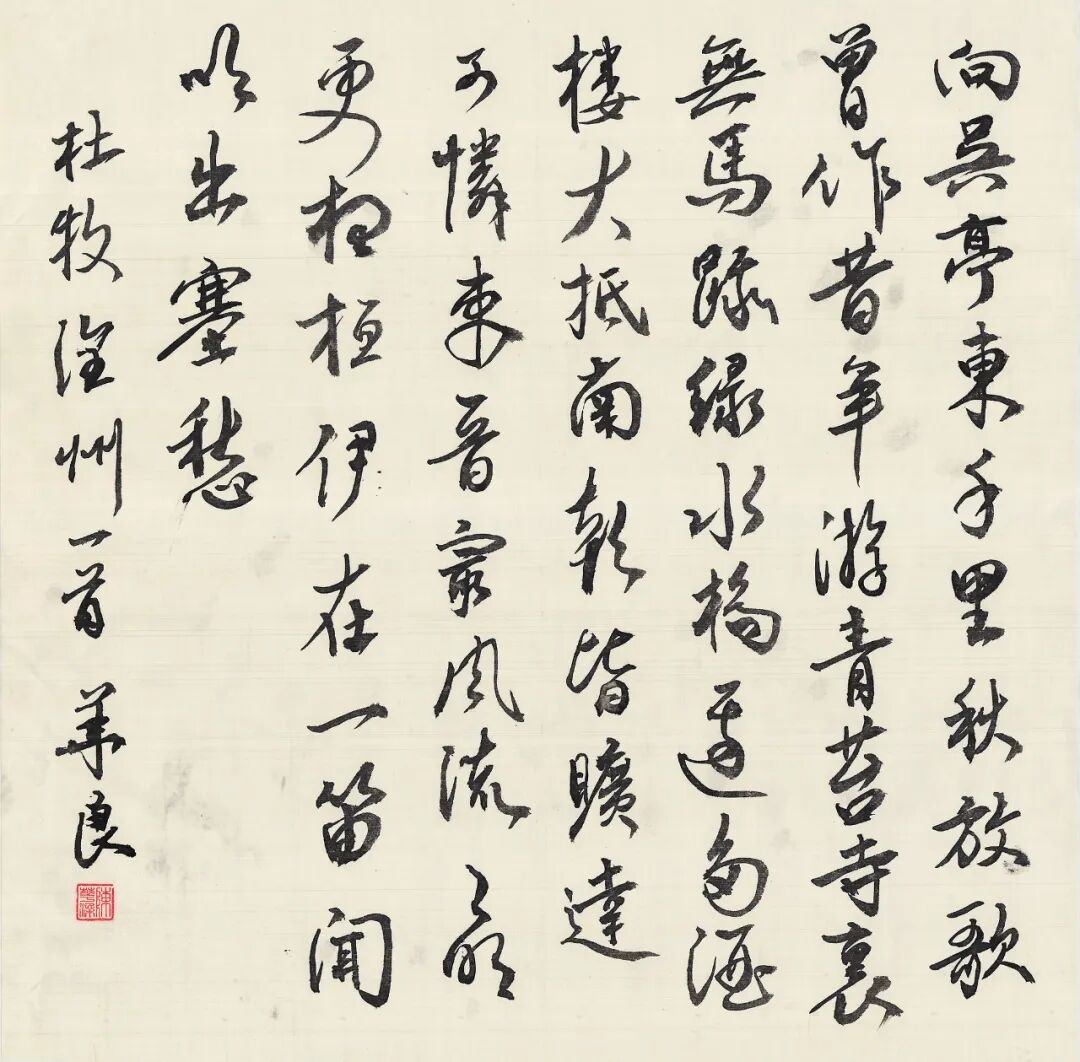 向吴亭東千里秋放歌
曾作昔年游青苔寺裏
無馬跡緑水橋邊多酒
樓大抵南朝皆曠達
可憐東晉最風流月明
更想桓伊在一笛聞
吹出塞愁
杜牧潤州一首 華良